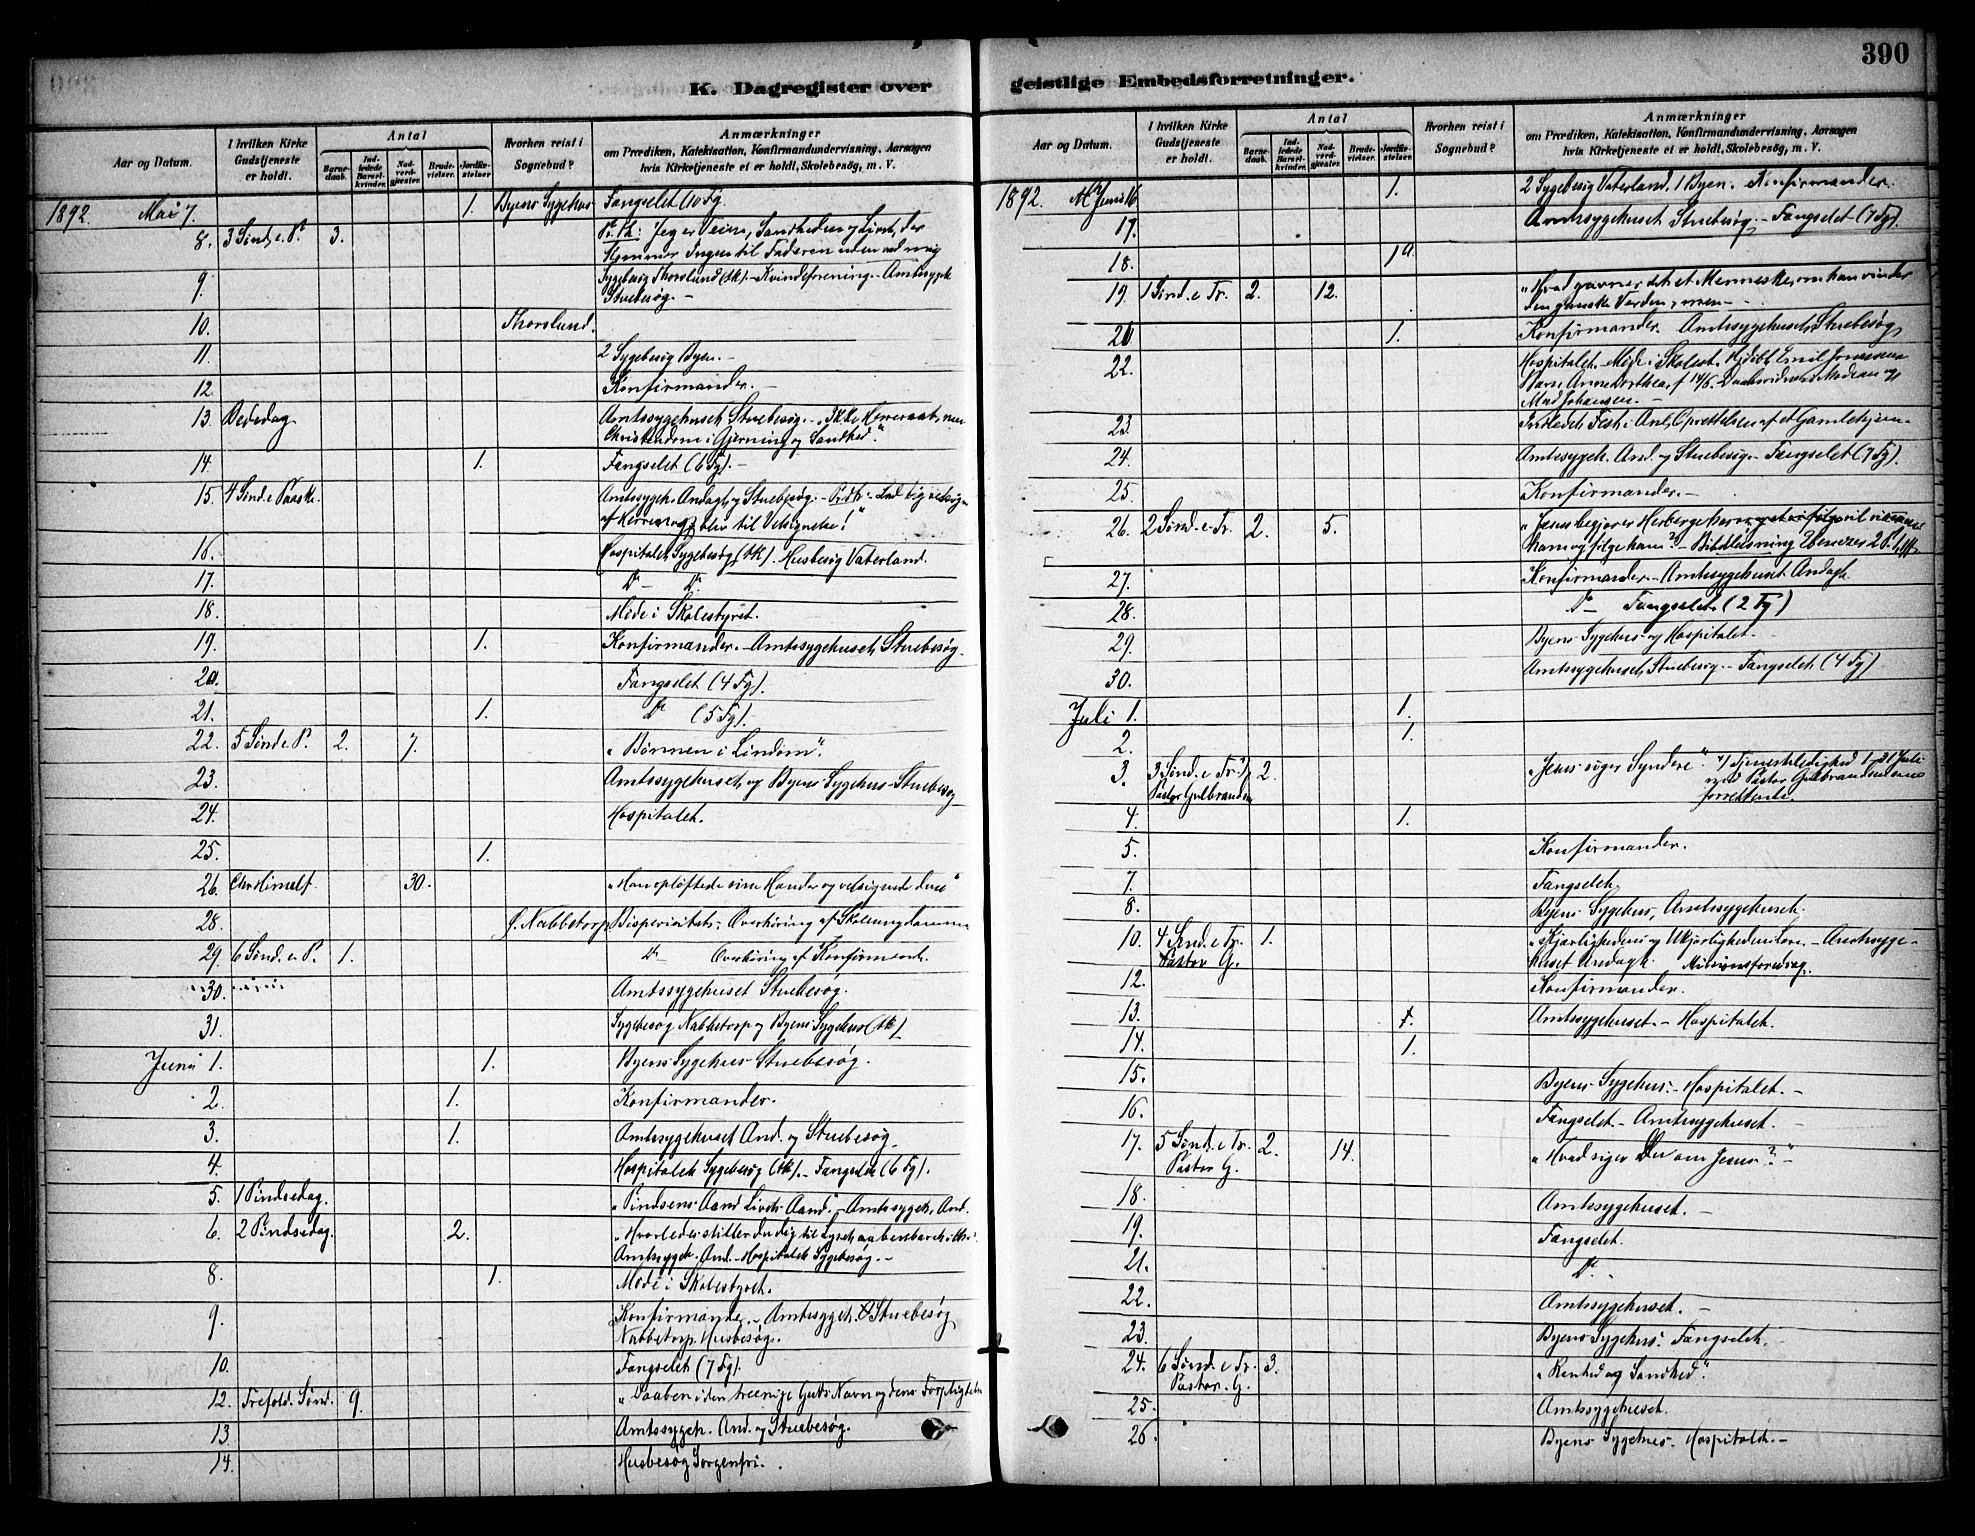 390
K. Dagregister over geistlige Embedsforretninger.
Aar og Datum.
I hvilken Kirke Gudstjeneste er holdt.
Antal
Barnedaab.
Indledede Barselkvinder.
Nadverdgjester.
Brudevielser.
Jordfæstelser.
Hvorhen reist i Sognebud?
Anmærkninger
om Prædiken, Katekisation, Konfirmandundervisning, Aarsagen
hvis Kirketjeneste ei er holdt, Skolebesøg, m. V.
1892. Mai 7. 1. Byens Sygehus Fangselet (10 Fg.
8. 3 Sønd. e. P. 3. Jeg er Veien, Sandheden og Livet, der
kommer Ingen til Faderen uden ved mig
9. Sygebesøg Thorslund (Ak) - Kvindeforening - Amtssygeh
Stuebesøg. -
10. Thorslund.
11. 2 Sygebesøg Byen. -
12 Konfirmander. -
13 Bededag Amtssygehuset Stuebesøg.
Christendom i Gjerning og Sandhed."
14. 1. Fangselet (6 Fg). -
15. 4 Sønd. e Paaske. Amtssygeh. Andagt og Stuebesøg. -
og bliv til Velsignelse!"
16. Hospitalet Sygebesøg (Ak). Husbesøg Vaterland.
17. Do - Do
18. Møde i Skolestyret.
19. 1. Konfirmander. - Amtssygehuset Stuebesøg.
20. Fangselet (4 Fg).
21. 1. Do (5 Fg).
22. 5 Sønd e P. 2. 7. "Bønnen i Løndom".
23. Amtssygehuset og Byens Sygehus - Stuebesøg
24. Hospitalet.
25. 1.
26. Chr Himelf. 30. "Han opløftede sine Hænder og velsignede dem"
28. S. Nabbetorp Bispevisitats - Overhøring af Skoleungdommen
29. 6 Sønd. e P. 1. Do - Overhøring af Konfirmerede.
30. Amtssygehuset Stuebesøg.
31. Sygebesøg Nabbetorp og Byens Sygehus (Ak)
Juni 1. 1. Byens Sygehus - Stuebesøg.
2. 1. Konfirmander.
3. 1. Amtssygehuset And. og Stuebesøg
4. Hospitalet Sygebesøg (Ak). - Fangselet (6 Fg).
5. 1 Pindsedag. "Pindsens Aand Livets Aand. - Amtssygeh. And.
6. 2 Pindsedag. 2. "Hvorledes stiller du dig til Lyset
Amtssygeh. And. - Hospitalet Sygebesøg -
8. 1. Møde i Skolestyret.
9. Konfirmander. - Amtssygeh. Stuebesøg
Nabbetorp. Husbesøg.
10. Fangselet (7 Fg).
12. Trefold. Sønd. 9. "Daaben i den treenige Guds Navn og dens
13. Amtssygeh. And. og Stuebesøg.
14. Husbesøg Sorgenfri.
Aar og Datum.
I hvilken Kirke Gudstjeneste er holdt.
Antal
Barnedaab.
Indledede Barselkvinder.
Nadverdgjester.
Brudevielser.
Jordfæstelser.
Hvorhen reist i Sognebud?
Anmærkninger
om Prædiken, Katekisation, Konfirmandundervisning, Aarsagen
hvis Kirketjeneste ei er holdt, Skolebesøg, m. V.
1892. Juni 16 1. 2 Sygebesøg Vaterland, 1 Byen. Konfirmander.
17. Amtssygehuset Stuebesøg - Fangselet (7 Fg).
18.
19. 1 Sønd. e Tr. 2. 12. "Hvad gavner det et Menneske, om han vinder
den ganske Verden, men - -
20 1. Konfirmander. Amtssygehuset, Stuebesøg
22. Hospitalet. Møde i Skolest.
Mad Johansen. -
23. Oprettelsen af et Gamlehjem
24. Amtssygeh. And. og Stuebesøg - Fangselet (7 Fg).
25. Konfirmander. -
26. 2 Sønd. e Tr. 2. 5. "Jesus begjærer Herberge
ham og følge ham? - Bibellæsning Ebenezer
27. Konfirmander. - Amtssygehuset Andagt
28. Do - Fangselet (2 Fg)
29. Byens Sygehus og Hospitalet. -
30. Amtssygehuset, Stuebesøg - Fangselet (4 Fg)
Juli 1. 1.
2. 1.
3. 3 Sønd. e Tr. 2. "Jesus søger Syndere" Tjenestledighed 1-31 Juli
Pastor Gulbrandsen med Pastor Gulbrandsen som
forrettende.
4. 1.
5. Konfirmander.
7. Fangselet
8. Byens Sygehus, Amtssygehuset.
10. 4 Sønd. e Tr. 1. Amtssyge-
Pastor G. huset Andagt. Missionsforedrag.
12. Konfirmander.
13. 1. Amtssygehuset. - Hospitalet.
14. 1.
15. Byens Sygehus. - Hospitalet. -
16. Fangselet - Amtssygehuset.
17. 5 Sønd. e Tr. 2. 14. "Hvad siger Du om Jesus?" -
Pastor G.
18. Amtssygehuset. -
19. Fangselet.
21. Do. -
22. Amtssygehuset. -
23. Byens Sygehus. Fangselet.
24. 6 Sønd. e Tr. 3. "Renhed og Sandhed".
Pastor G.
25. Amtssygehuset.
26. Byens Sygehus. Hospitalet. -